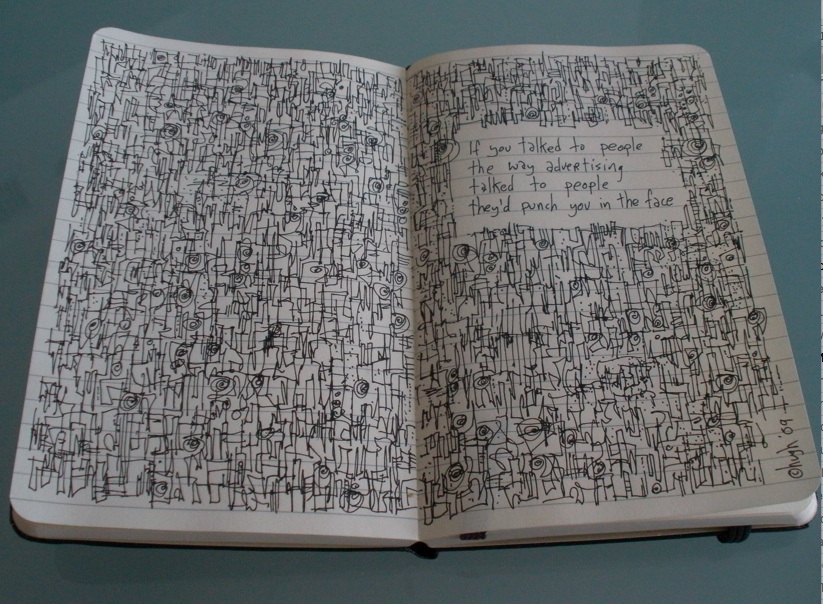 If you talked to people
the way advertising
talked to people
they'd punch you in the face
©hugh '09